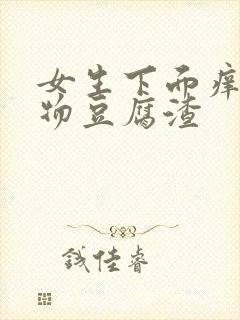 女生下面痒
物豆腐渣
钱佳睿